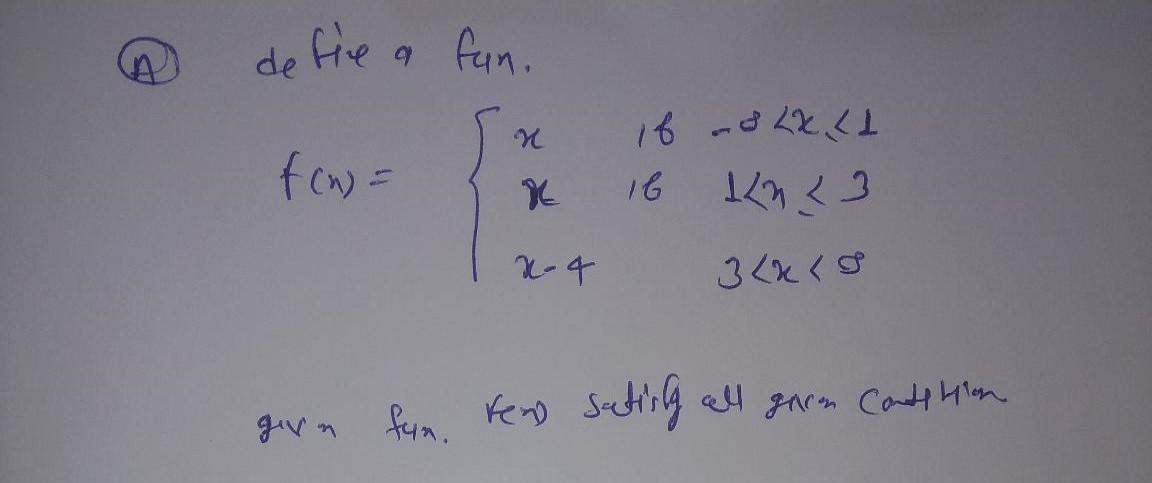 A define a fun.
f(x) = { x if -8 < x ≤ 1
x if 1 < x ≤ 3
x-4 3 < x < 8
given fun. f(x) satisfy all given condition